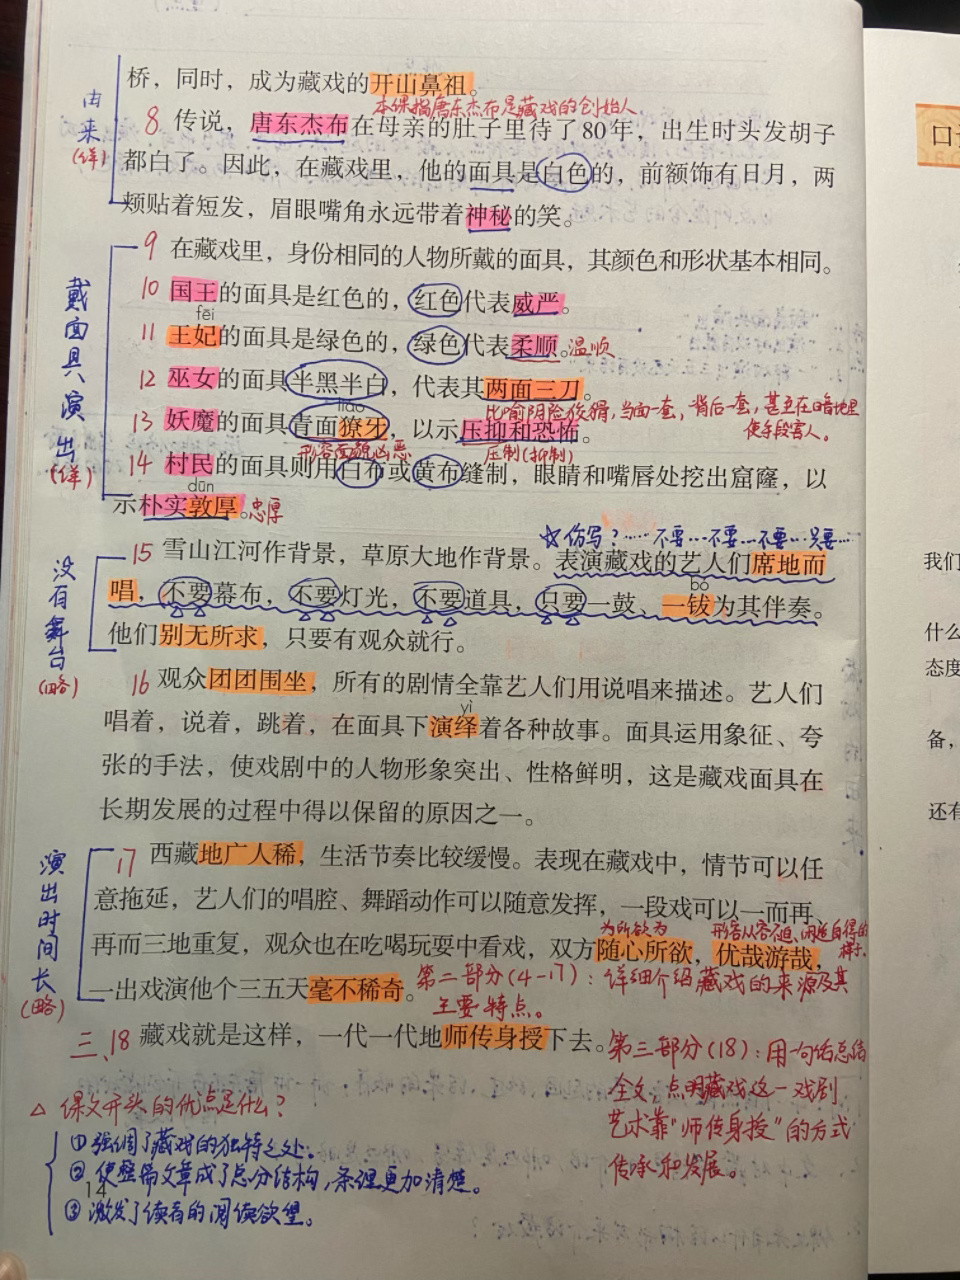 桥，同时，成为藏戏的开山鼻祖。
本课指唐东杰布是藏戏的创始人
由来
(详)
8 传说，唐东杰布在母亲的肚子里待了80年，出生时头发胡子
都白了。因此，在藏戏里，他的面具是白色的，前额饰有日月，两
颊贴着短发，眉眼嘴角永远带着神秘的笑。
戴面具演出
(详)
9 在藏戏里，身份相同的人物所戴的面具，其颜色和形状基本相同。
10 国王的面具是红色的，红色代表威严。
fēi
11 王妃的面具是绿色的，绿色代表柔顺。温顺
12 巫女的面具半黑半白，代表其两面三刀。
比喻阴险狡猾，当面一套，背后一套，甚至在暗地里
使手段害人。
liáo
13 妖魔的面具青面獠牙，以示压抑和恐怖。
形容面貌凶恶
压制(抑制)
14 村民的面具则用白布或黄布缝制，眼睛和嘴唇处挖出窟窿，以
dūn
示朴实敦厚。忠厚
☆仿写？……不要…不要…不要…只要…
没有舞台
(略)
15 雪山江河作背景，草原大地作背景。表演藏戏的艺人们席地而
bó
唱，不要幕布，不要灯光，不要道具，只要一鼓、一钹为其伴奏。
他们别无所求，只要有观众就行。
16 观众团团围坐，所有的剧情全靠艺人们用说唱来描述。艺人们
yì
唱着，说着，跳着，在面具下演绎着各种故事。面具运用象征、夸
张的手法，使戏剧中的人物形象突出、性格鲜明，这是藏戏面具在
长期发展的过程中得以保留的原因之一。
演出时间长
(略)
17 西藏地广人稀，生活节奏比较缓慢。表现在藏戏中，情节可以任
意拖延，艺人们的唱腔、舞蹈动作可以随意发挥，一段戏可以一而再、
为所欲为
形容从容不迫、闲适自得的
样子。
再而三地重复，观众也在吃喝玩耍中看戏，双方随心所欲，优哉游哉，
一出戏演他个三五天毫不稀奇。
第二部分(4-17)：详细介绍藏戏的来源及其
主要特点。
三、18 藏戏就是这样，一代一代地师传身授下去。
第三部分(18)：用一句话总结
全文，点明藏戏这一戏剧
艺术靠“师传身授”的方式
传承和发展。
△ 课文开头的优点是什么？
①强调了藏戏的独特之处。
②使整篇文章成了总分结构，条理更加清楚。
③激发了读者的阅读欲望。
14
我们
什么
态度
备，
还有